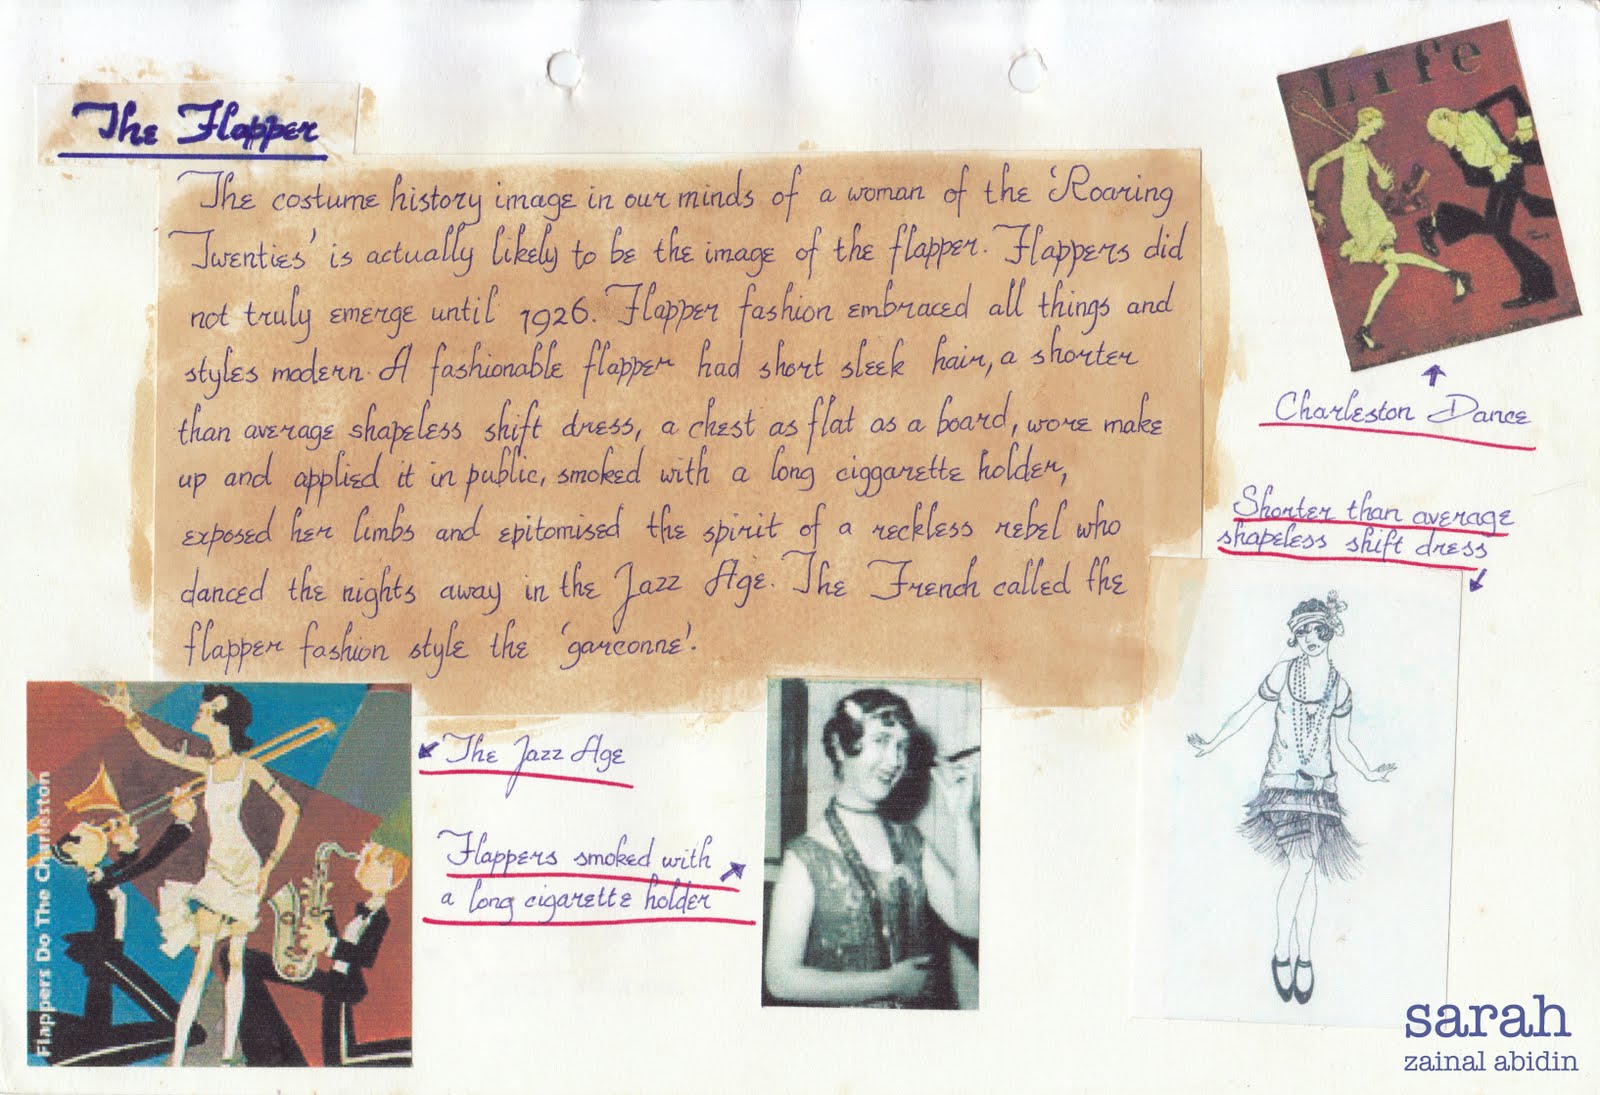 The Flapper
The costume history image in our minds of a woman of the 'Roaring
Twenties' is actually likely to be the image of the flapper. Flappers did
not truly emerge until 1926. Flapper fashion embraced all things and
styles modern. A fashionable flapper had short sleek hair, a shorter
than average shapeless shift dress, a chest as flat as a board, wore make
up and applied it in public, smoked with a long ciggarette holder,
exposed her limbs and epitomised the spirit of a reckless rebel who
danced the nights away in the Jazz Age. The French called the
flapper fashion style the 'garconne'.
Life
Charleston Dance
Shorter than average
shapeless shift dress
Flappers Do The Charleston
The Jazz Age
Flappers smoked with
a long cigarette holder
sarah
zainal abidin